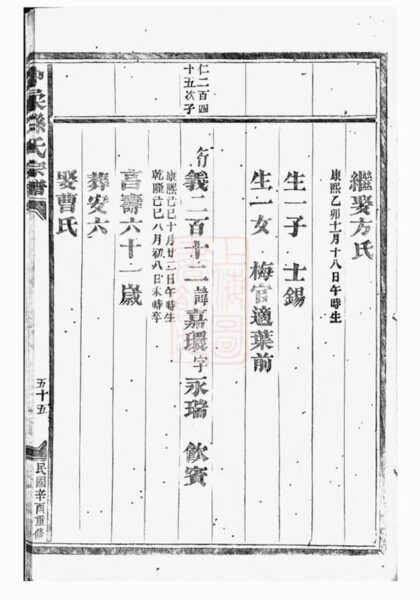 繼娶方氏
康熙乙卯十一月十八日午時生
生一子 士錫
生一女 梅官適葉前
仁二百四
十五次子
行義二百十三諱嘉環字永瑞 飲賓
康熙己巳十月廿二日午時生
乾隆己巳八月初八日未時卒
享壽六十一歲
葬安六
娶曹氏
氏宗譜
五十五
民國辛酉重修